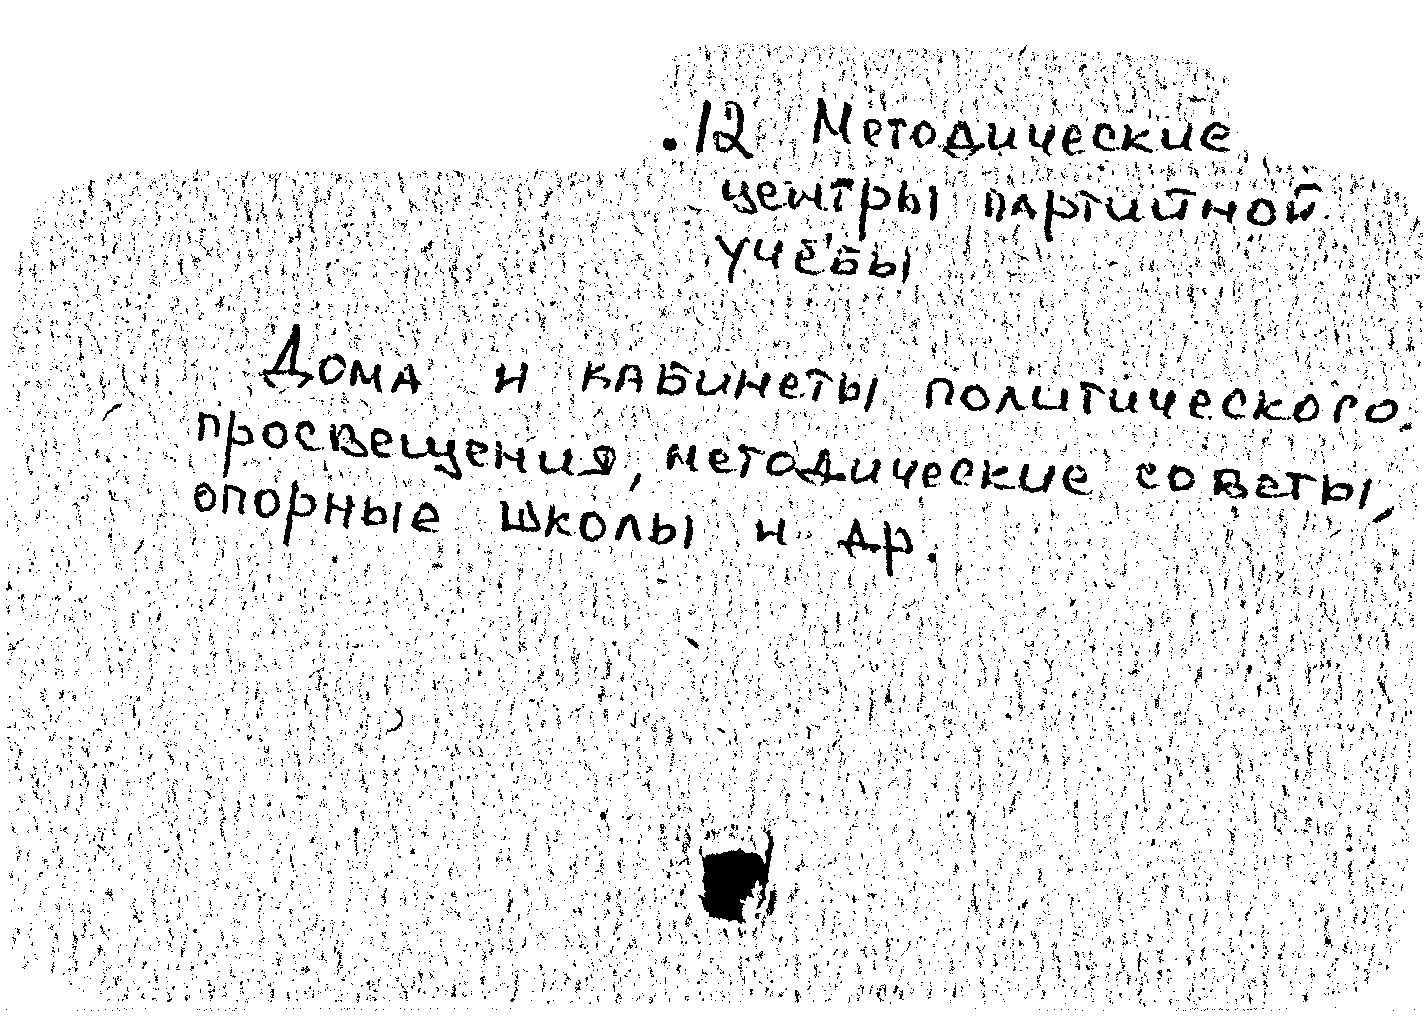 .12 Методические
центры партийной
учёбы
Дома и кабинеты политического
просвещения, методические советы,
опорные школы и др.